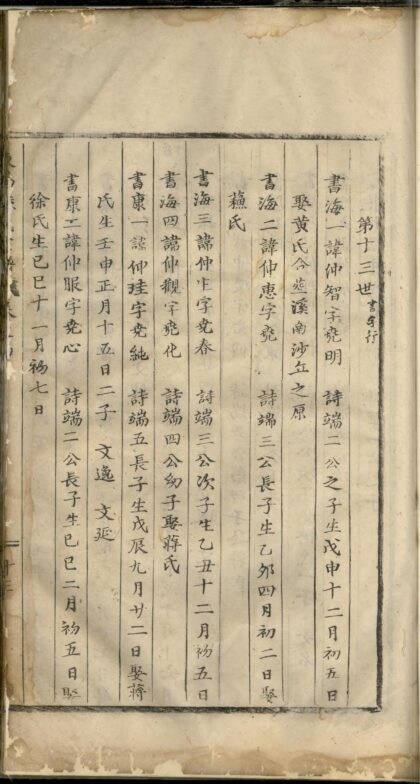 第十三世 書字行
書海一諱仲智字堯明 詩端二公之子生戊申十二月初五日
娶黃氏合葬溪南沙丘之原
書海二諱仲惠字堯 詩端三公長子生乙卯四月初二日娶
蘓氏
書海三諱仲生字堯春 詩端三公次子生乙丑十二月初五日
書海四諱仲觀字堯化 詩端四公幼子娶蔣氏
書康一諱仲珪字堯純 詩端五長子生戊辰九月廿二日娶蔣
氏生壬申正月十五日二子 文逸 文延
書康二諱仲服字堯心 詩端二公長子生己巳二月初五日娶
徐氏生己巳十一月初七日